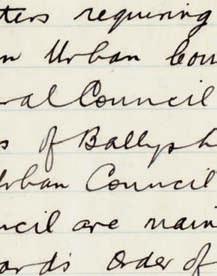 ters requiring
n Urban Cou
ral Council
s of Ballysh
Urban Council
ncil are main
ards Order of